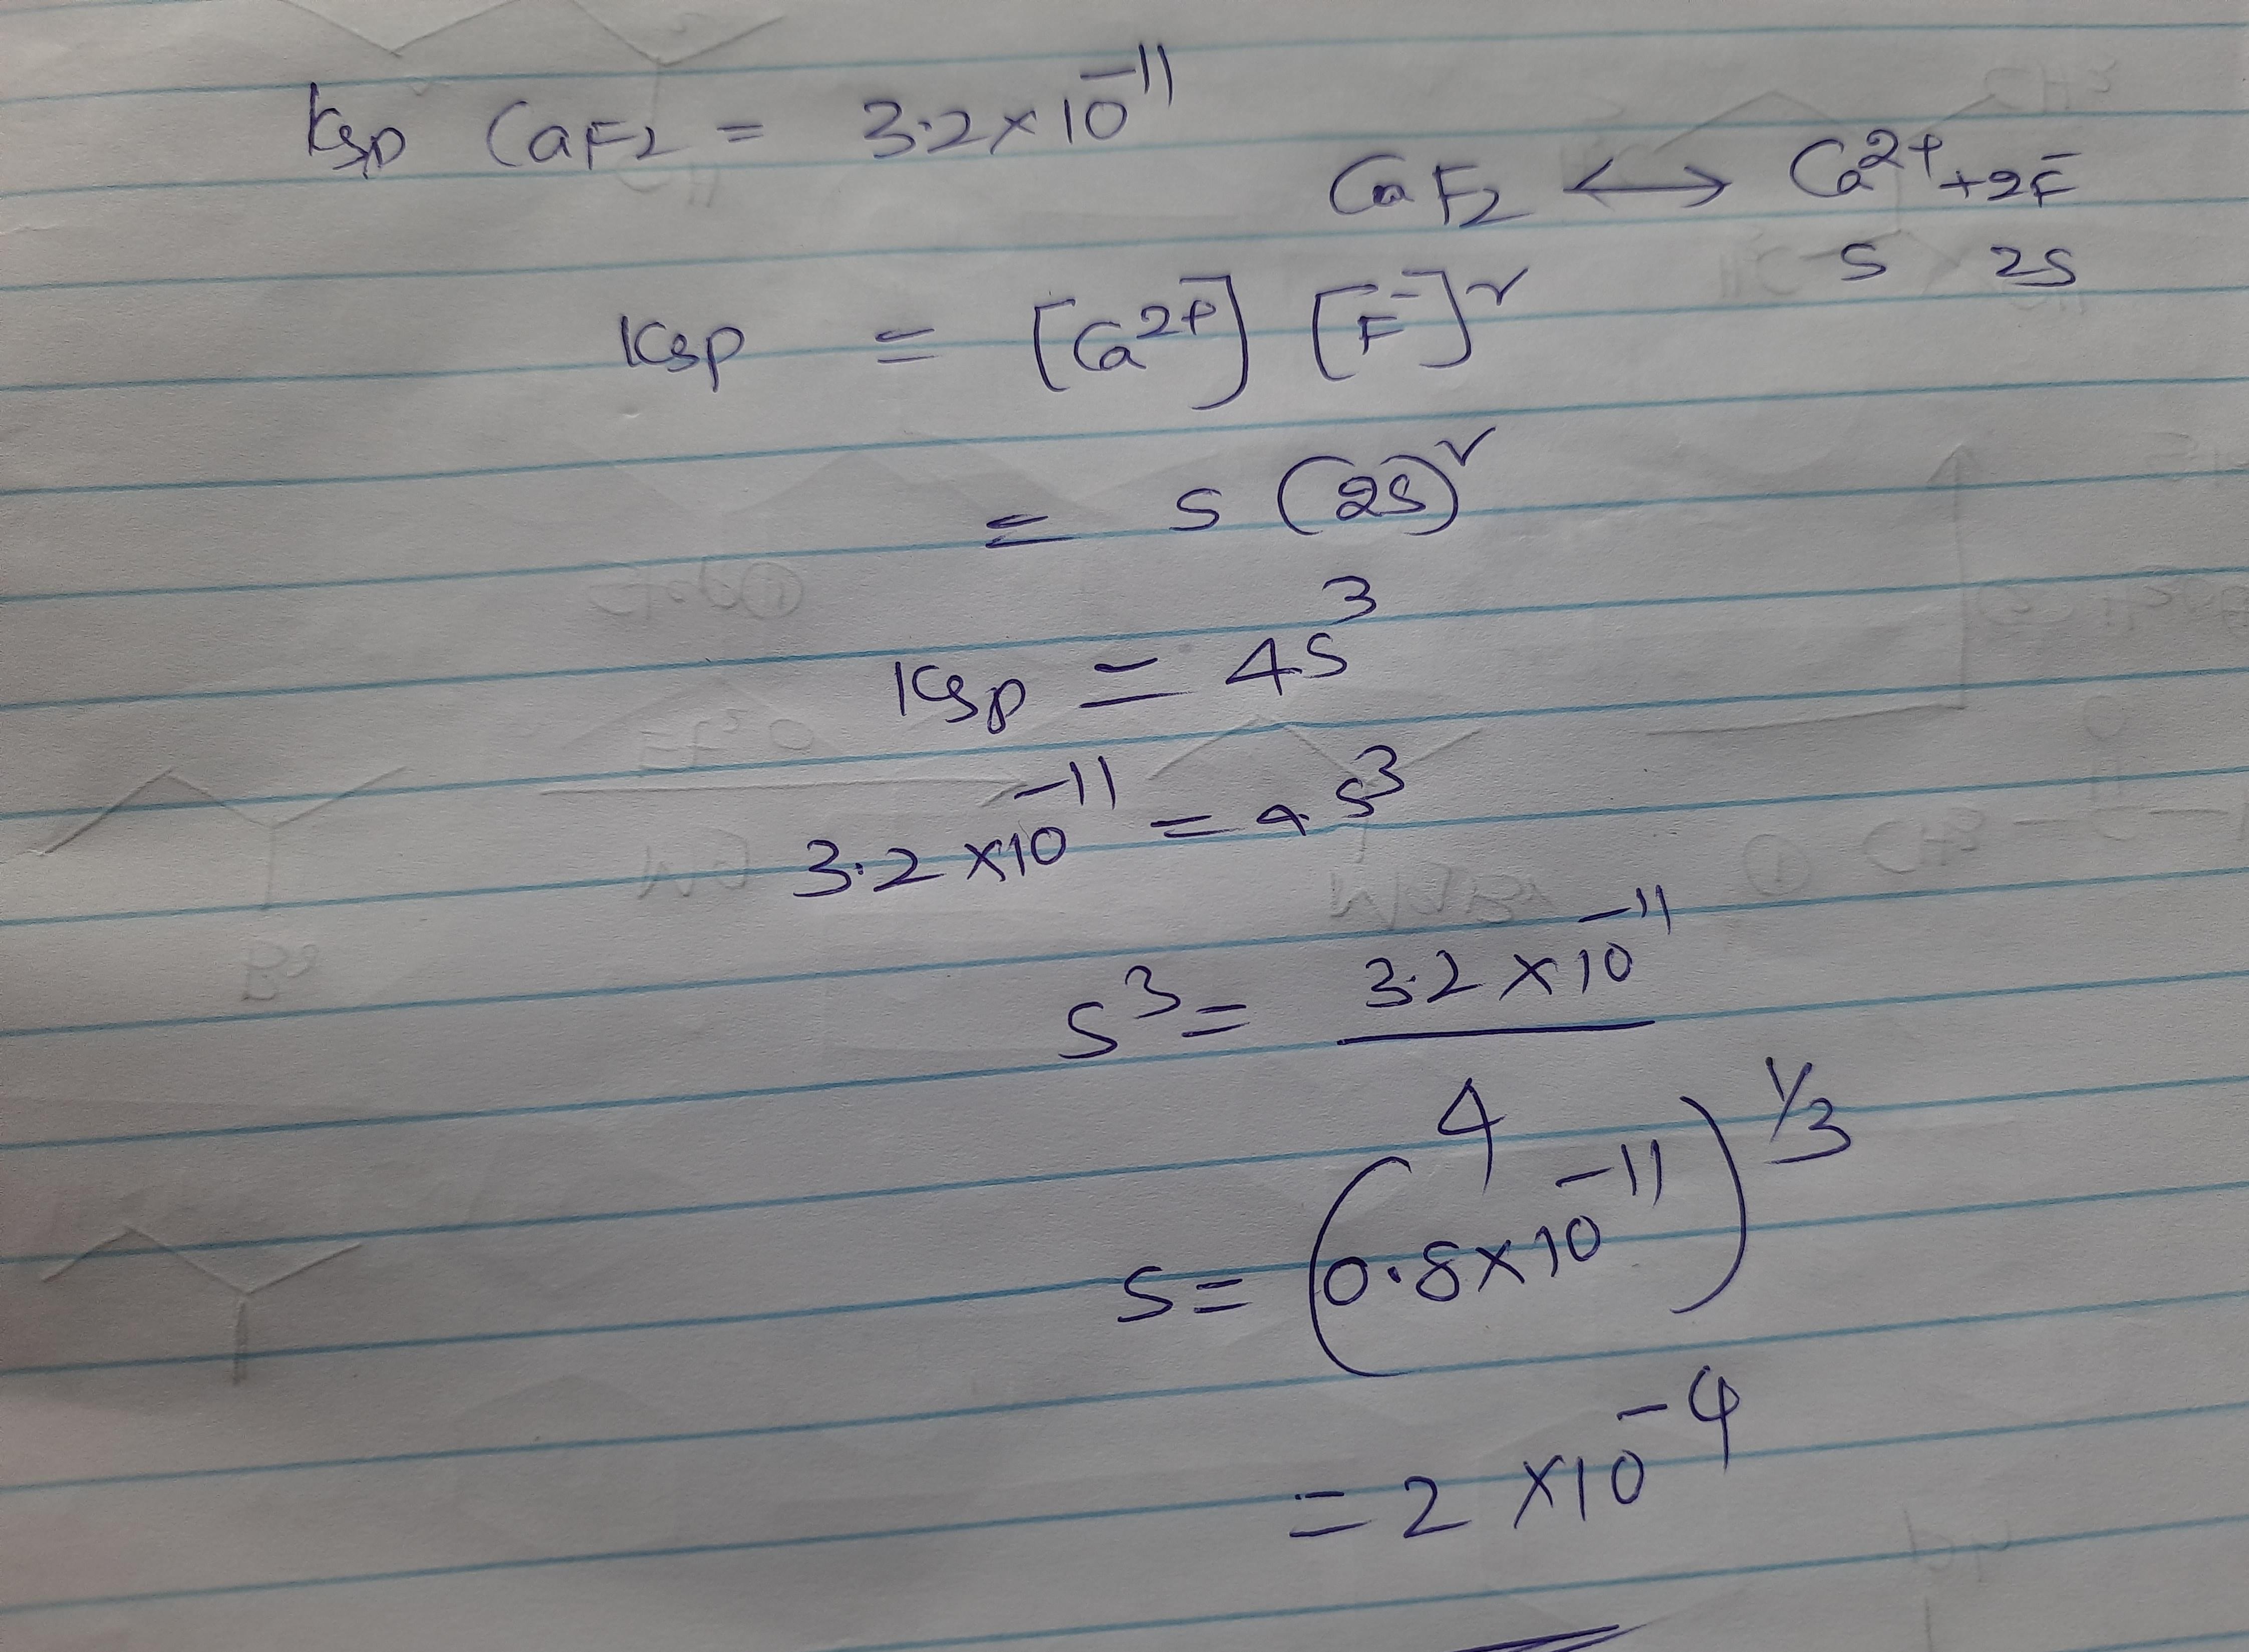 Ksp CaF2 = 3.2×10^-11
CaF2 ⟷ Ca^2+ + 2F^-
S 2S
Ksp = [Ca^2+] [F^-]^2
= S (2S)^2
Ksp = 4S^3
3.2 ×10^-11 = 4S^3
S^3 = 3.2 ×10^-11
4
S = (0.8×10^-11)^1/3
= 2 ×10^-4